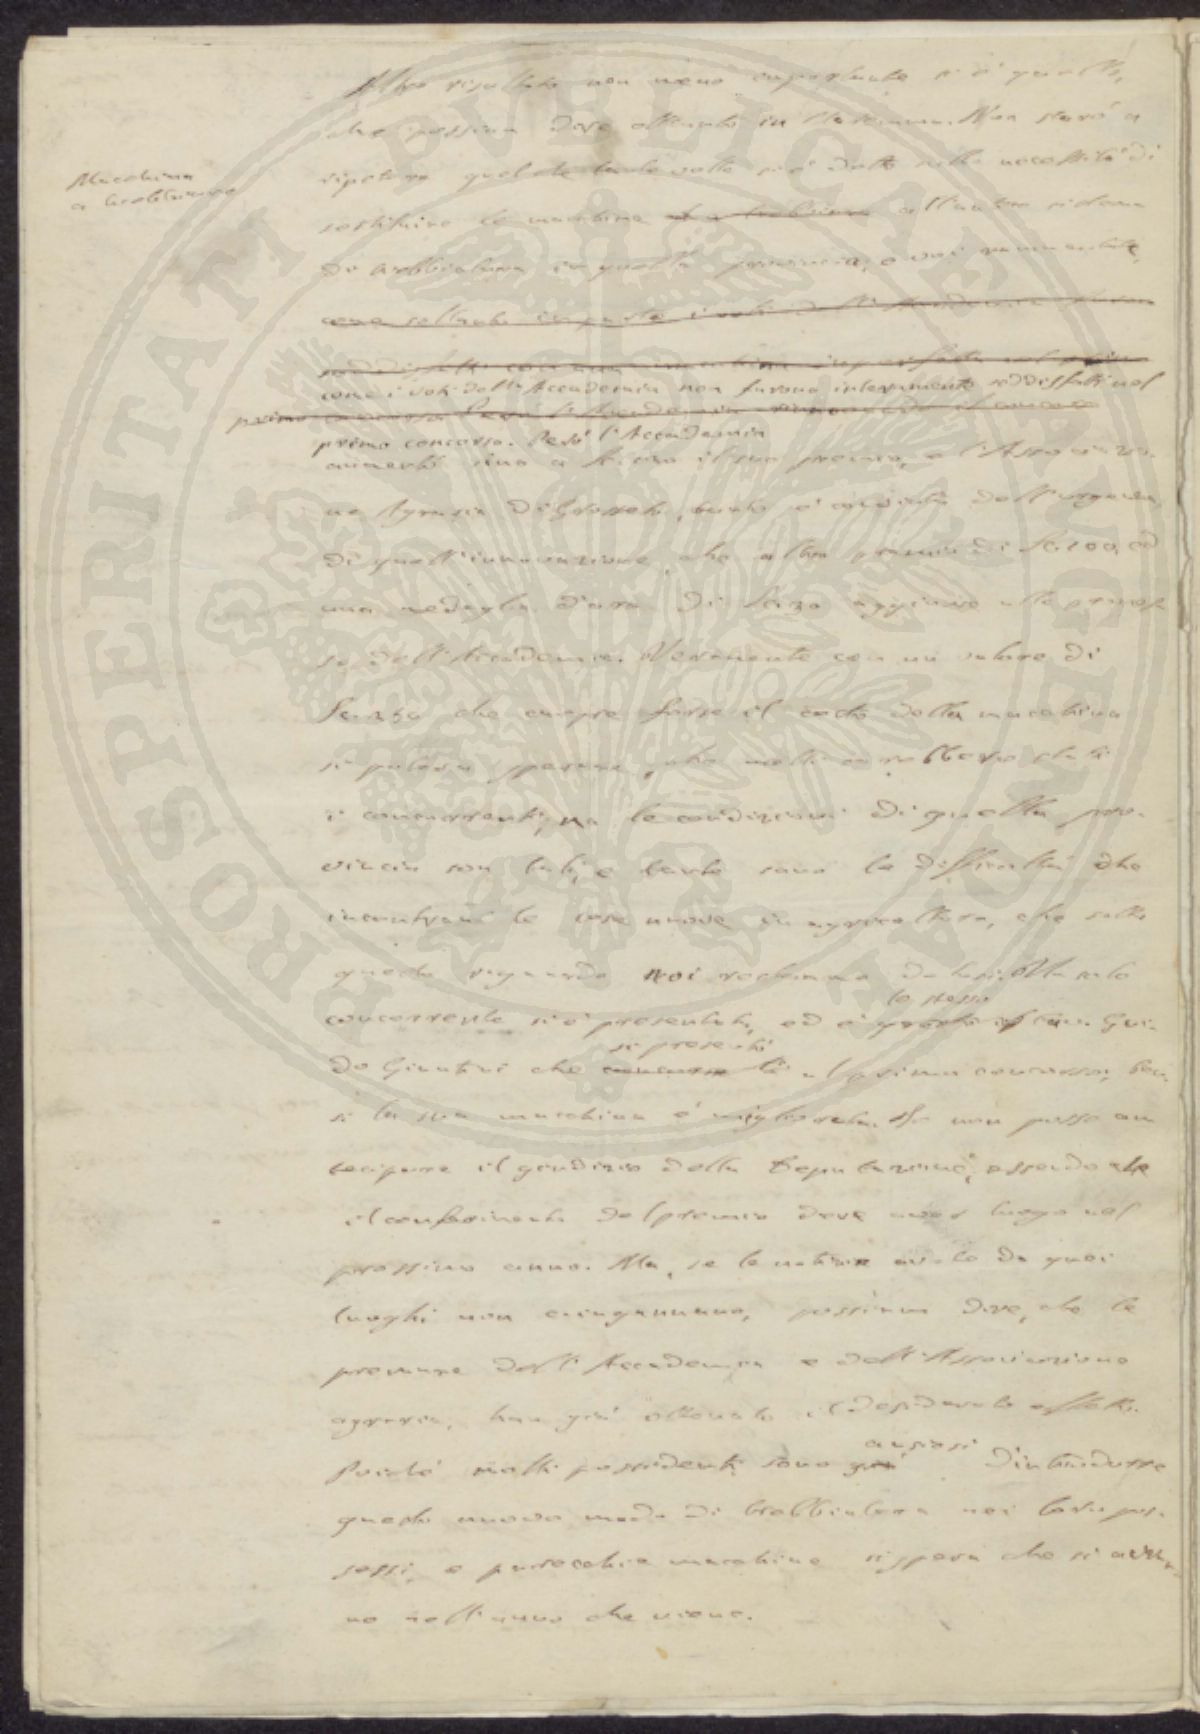 Altro risultato non meno importante si è quello,
che possiam dire ottenuto in Maremma. Non starò a
Macchina
a trebbiare
ripetere quel che tante volte si è detto sulla necessità di
sostituire le macchine all'antico sistema
di trebbiatura in quella provincia, e voi rammentate,
come soltanto in parte i voti dell'Accademia furon
soddisfatti con una macchina imperfetta nel primo
come i voti dell'Accademia non furono interamente soddisfatti nel
primo concorso. Però l'Accademia
primo concorso. Però l'Accademia
aumentò sino a il suo premio, e l'Associazio-
ne Agraria di Grosseto, tanto è convinta dell'urgenza
di quest'innovazione, che altro premio di Sc. 100, ed
una medaglia d'oro di Sc. 30 aggiunse alle promes-
se dell'Accademia. Veramente con un valore di
Sc. 230 che cuopre forse il costo della macchina
si poteva sperare, che molti sarebbero stati
i concorrenti, ma le condizioni di quella pro-
vincia son tali, e tante sono le difficoltà che
incontrano le cose nuove in agricoltura, che sotto
questo riguardo noi restammo delusi. Un solo
concorrente si è presentato, ed è
lo stesso
Gui-
do Giuntini che
si presentò
al primo concorso, ben-
sì la sua macchina è migliorata. Io non posso an
tecipare il giudizio della Deputazione, essendo che
il conferimento del premio deve aver luogo nel
prossimo anno. Ma, se le notizie avute da quei
luoghi non c'ingannano, possiam dire, che le
premure dell'Accademia e dell'Associazione
agraria, han già ottenuto il desiderato effetto.
Poichè molti possidenti sono già
ansiosi
d'introdurre
questo nuovo modo di trebbiatura nei loro pos-
sessi, e parecchie macchine si spera che si avran-
no nell'anno che viene.
PROSPERITATI PUBLICAE AUGENDAE